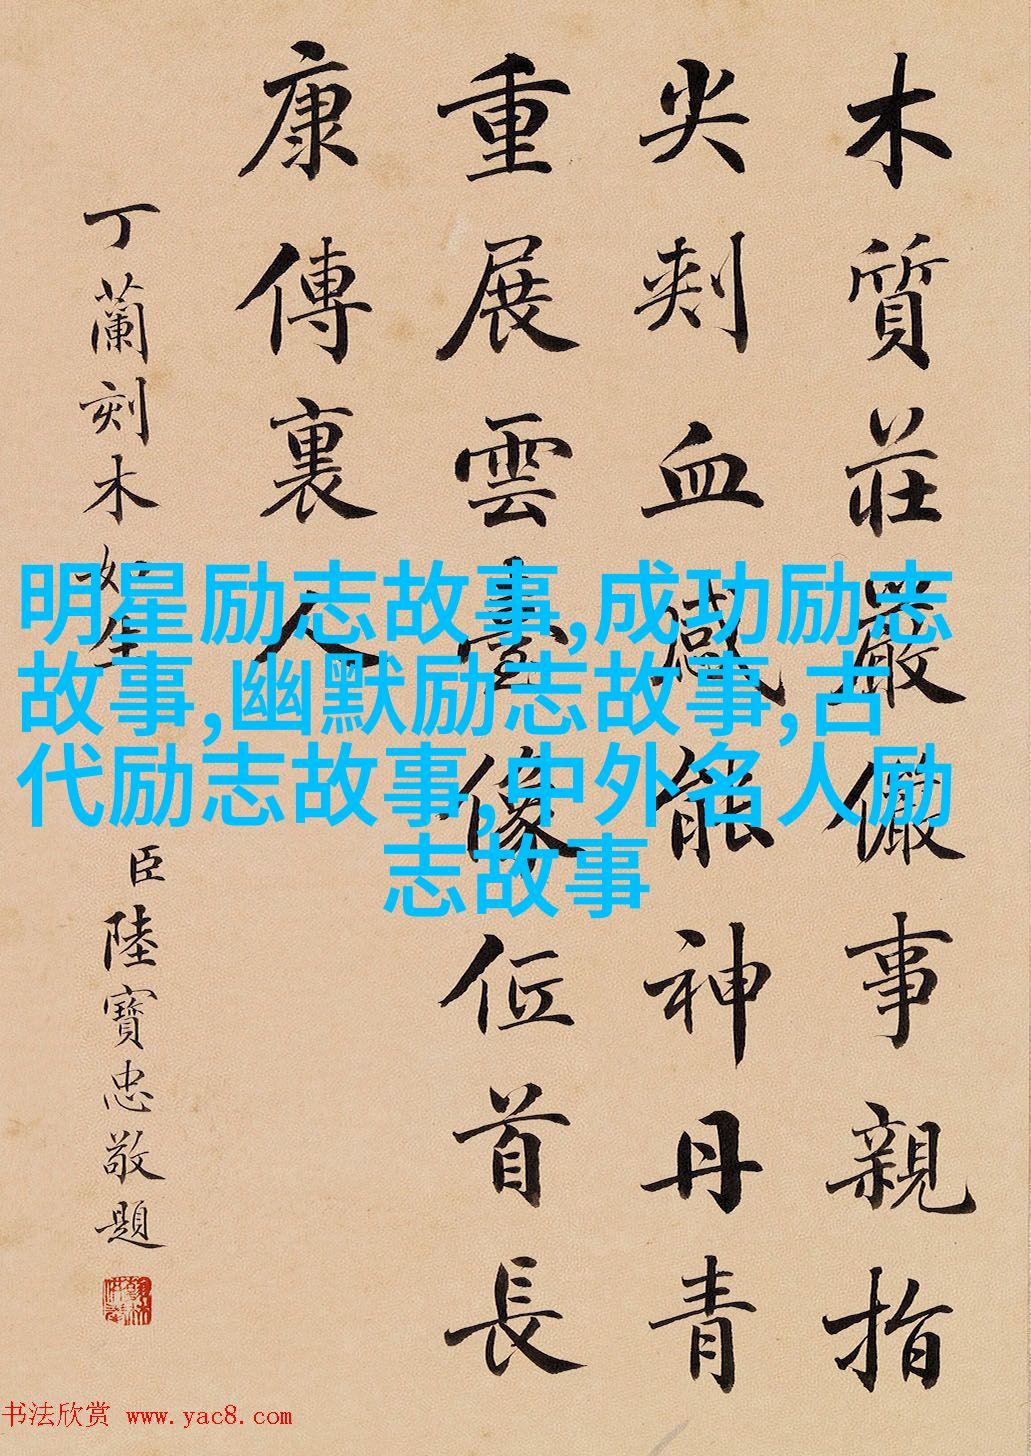 木質莊嚴儼事親指
尖刾血感能神丹青
重展雲臺像首長
康傳裏人
丁蘭刻木如生
臣陸寶忠敬題
明星励志故事,成功励志
故事,幽默励志故事,古
代励志故事,中外名人励
志故事
书法欣赏 www.yac8.com